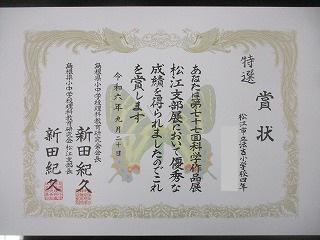 賞状
特選
松江市立法吉小学校四年
あなたは第七十七回科学作品展
松江支部展において優秀な
成績を得られましたのでこれ
を賞します
令和六年九月二十日
島根県小中学校理科教育研究会会長
新田紀久
島根県小中学校理科教育研究会松江支部長
新田紀久